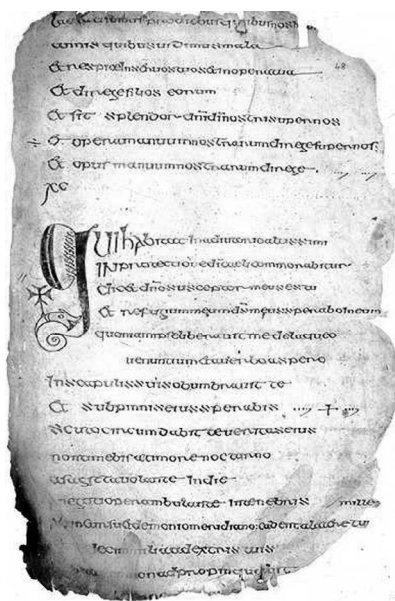 pro diebus quibus nos
annis quibus uidimus mala
Et respice in seruos tuos et in opera tua 48
Et dirige filios eorum
Et sit splendor dni di nostri super nos
÷ Et opera manuum nostrarum dirige super nos:
Et opus manuum nostrarum dirige
xc
Qui habitat in adiutorio altissimi
IN protectione di caeli commorabitur
dicet dno susceptor meus es tu
Et refugium meum ds meus sperabo in eum
quoniam ipse liberauit me de laqueo
uenantium et a uerbo aspero
In scapulis suis obumbrauit te
Et sub pinnis eius sperabis
scuto circumdabit te ueritas eius
non timebis a timore nocturno
a sagitta uolante in die
negotio perambulante in tenebris mille
incursu et demonio meridiano: cadent a latere tuo
decem milia a dextris tuis
non adpropinquabit